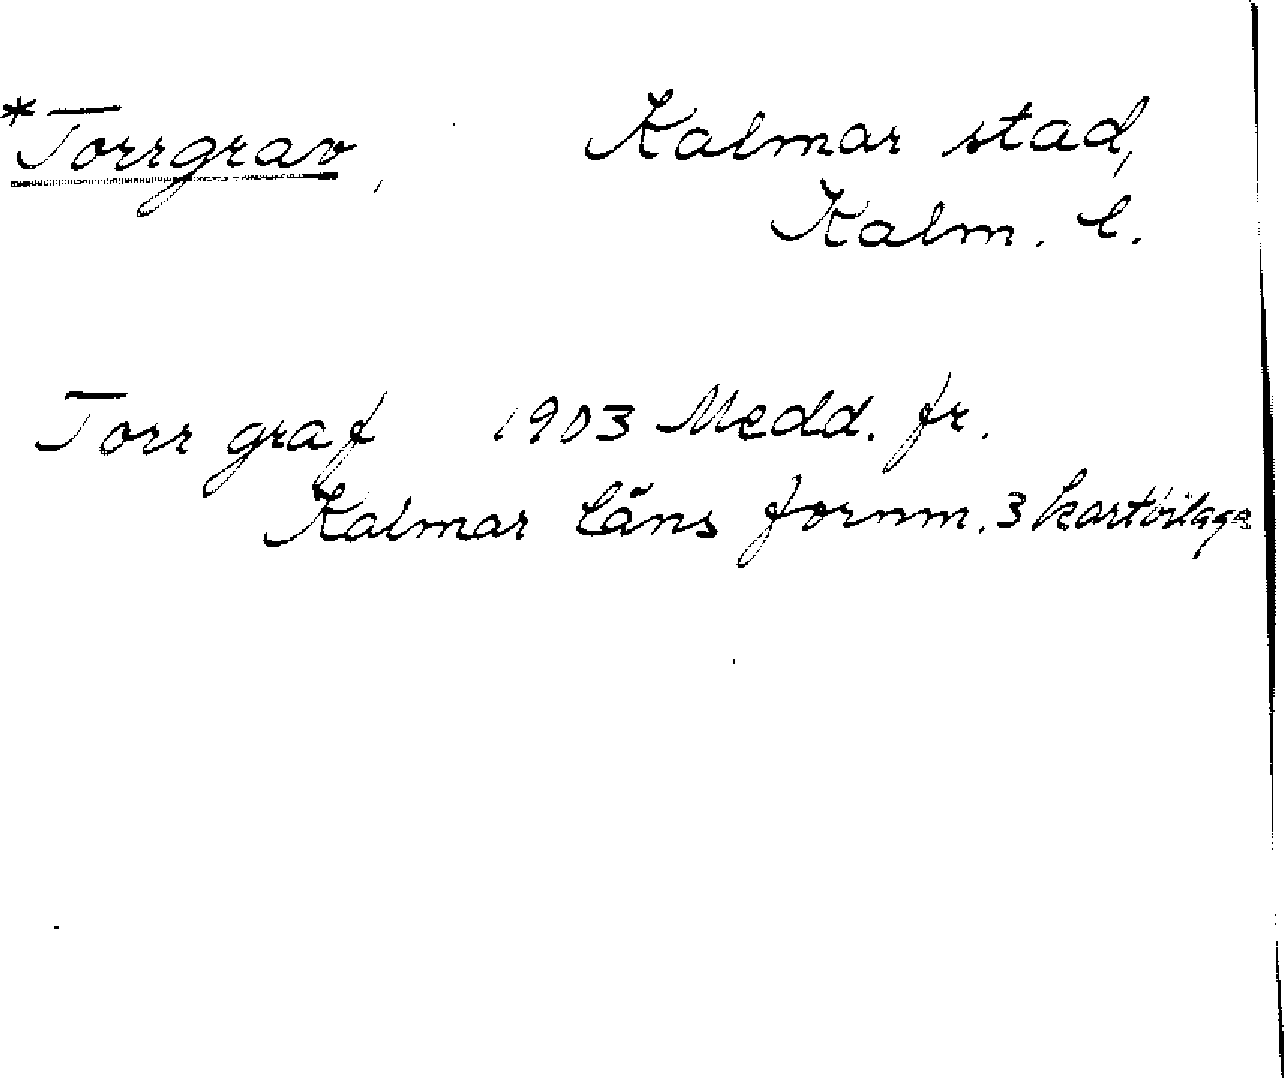 *Torrgrav, Kalmar stad,
Kalm. l.
Torr graf 1903 Medd. fr.
Kalmar läns fornm. 3 kartbilaga